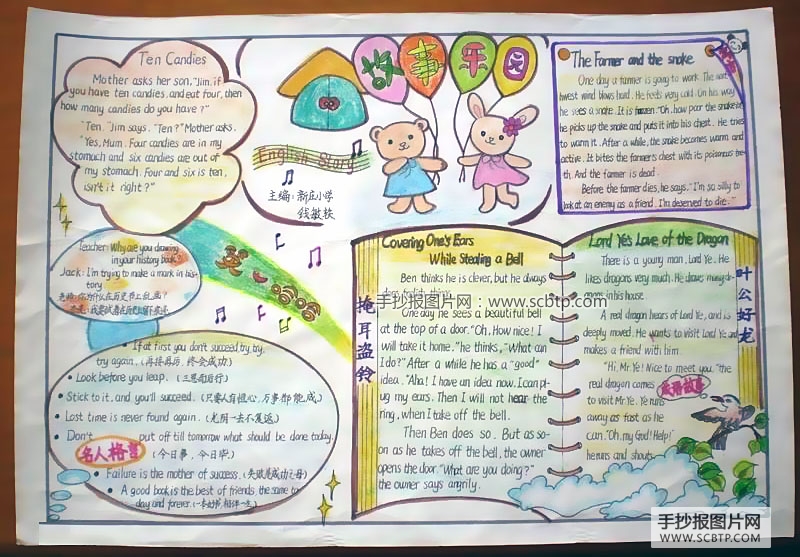 Ten Candies
Mother asks her son, "Jim, if
you have ten candies, and eat four, then
how many candies do you have?"
"Ten." Jim says. "Ten?" Mother asks.
"Yes, Mum. Four candies are in my
stomach and six candies are out of
my stomach. Four and six is ten,
isn't it right?"
故事乐园
English Story
主编：新庄小学
The Farmer and the snake
One day a farmer is going to work. The nort
hwest wind blows hard. He feels very cold. On his way
he sees a snake. It is frozen. "Oh, how poor the snake is"
he picks up the snake and puts it into his chest. He tries
to warm it. After a while, the snake becomes warm and
active. It bites the farmer's chest with its poisonous tee
th. And the farmer is dead.
Before the farmer dies, he says. "I'm so silly to
look at an enemy as a friend. I'm deserved to die."
Teacher: Why are you drawing
in your history book?
Jack: I'm trying to make a mark in his-
tory.
老师：你为什么在历史书上乱画？
If at first you don't succeed, try, try,
try again. (再接再厉，终会成功)
Look before you leap. (三思而后行)
Stick to it, and you'll succeed. (只要人有恒心，万事都能成。)
Lost time is never found again. (光阴一去不复返)
Don't put off till tomorrow what should be done today.
名人格言 (今日事，今日毕)
Failure is the mother of success. (失败是成功之母)
A good book is the best of friends, the same to
day and forever. (一本好书，相伴一生)
掩耳盗铃
Covering One's Ears
While Stealing a Bell
Ben thinks he is clever, but he always
手抄报图片网：www.scbtp.com
One day he sees a beautiful bell
at the top of a door. "Oh, How nice! I
will take it home." he thinks, "What can
I do?" After a while he has a "good"
idea. "Aha! I have an idea now. I can pl-
ug my ears. Then I will not hear the
ring, when I take off the bell.
Then Ben does so. But as so-
on as he takes off the bell, the owner
opens the door. "What are you doing?"
the owner says angrily.
Lord Ye's Love of the Dragon
There is a young man, Lord Ye. He
likes dragons very much. He draws many
in his house.
A real dragon hears of Lord Ye, and is
deeply moved. He wants to visit Lord Ye and
makes a friend with him.
"Hi, Mr. Ye! Nice to meet you." the
real dragon comes
to visit Mr. Ye. Ye runs
away as fast as he
can. "Oh, my God! Help!"
he runs and shouts.
叶公好龙
成语故事
手抄报图片网
WWW.SCBTP.COM